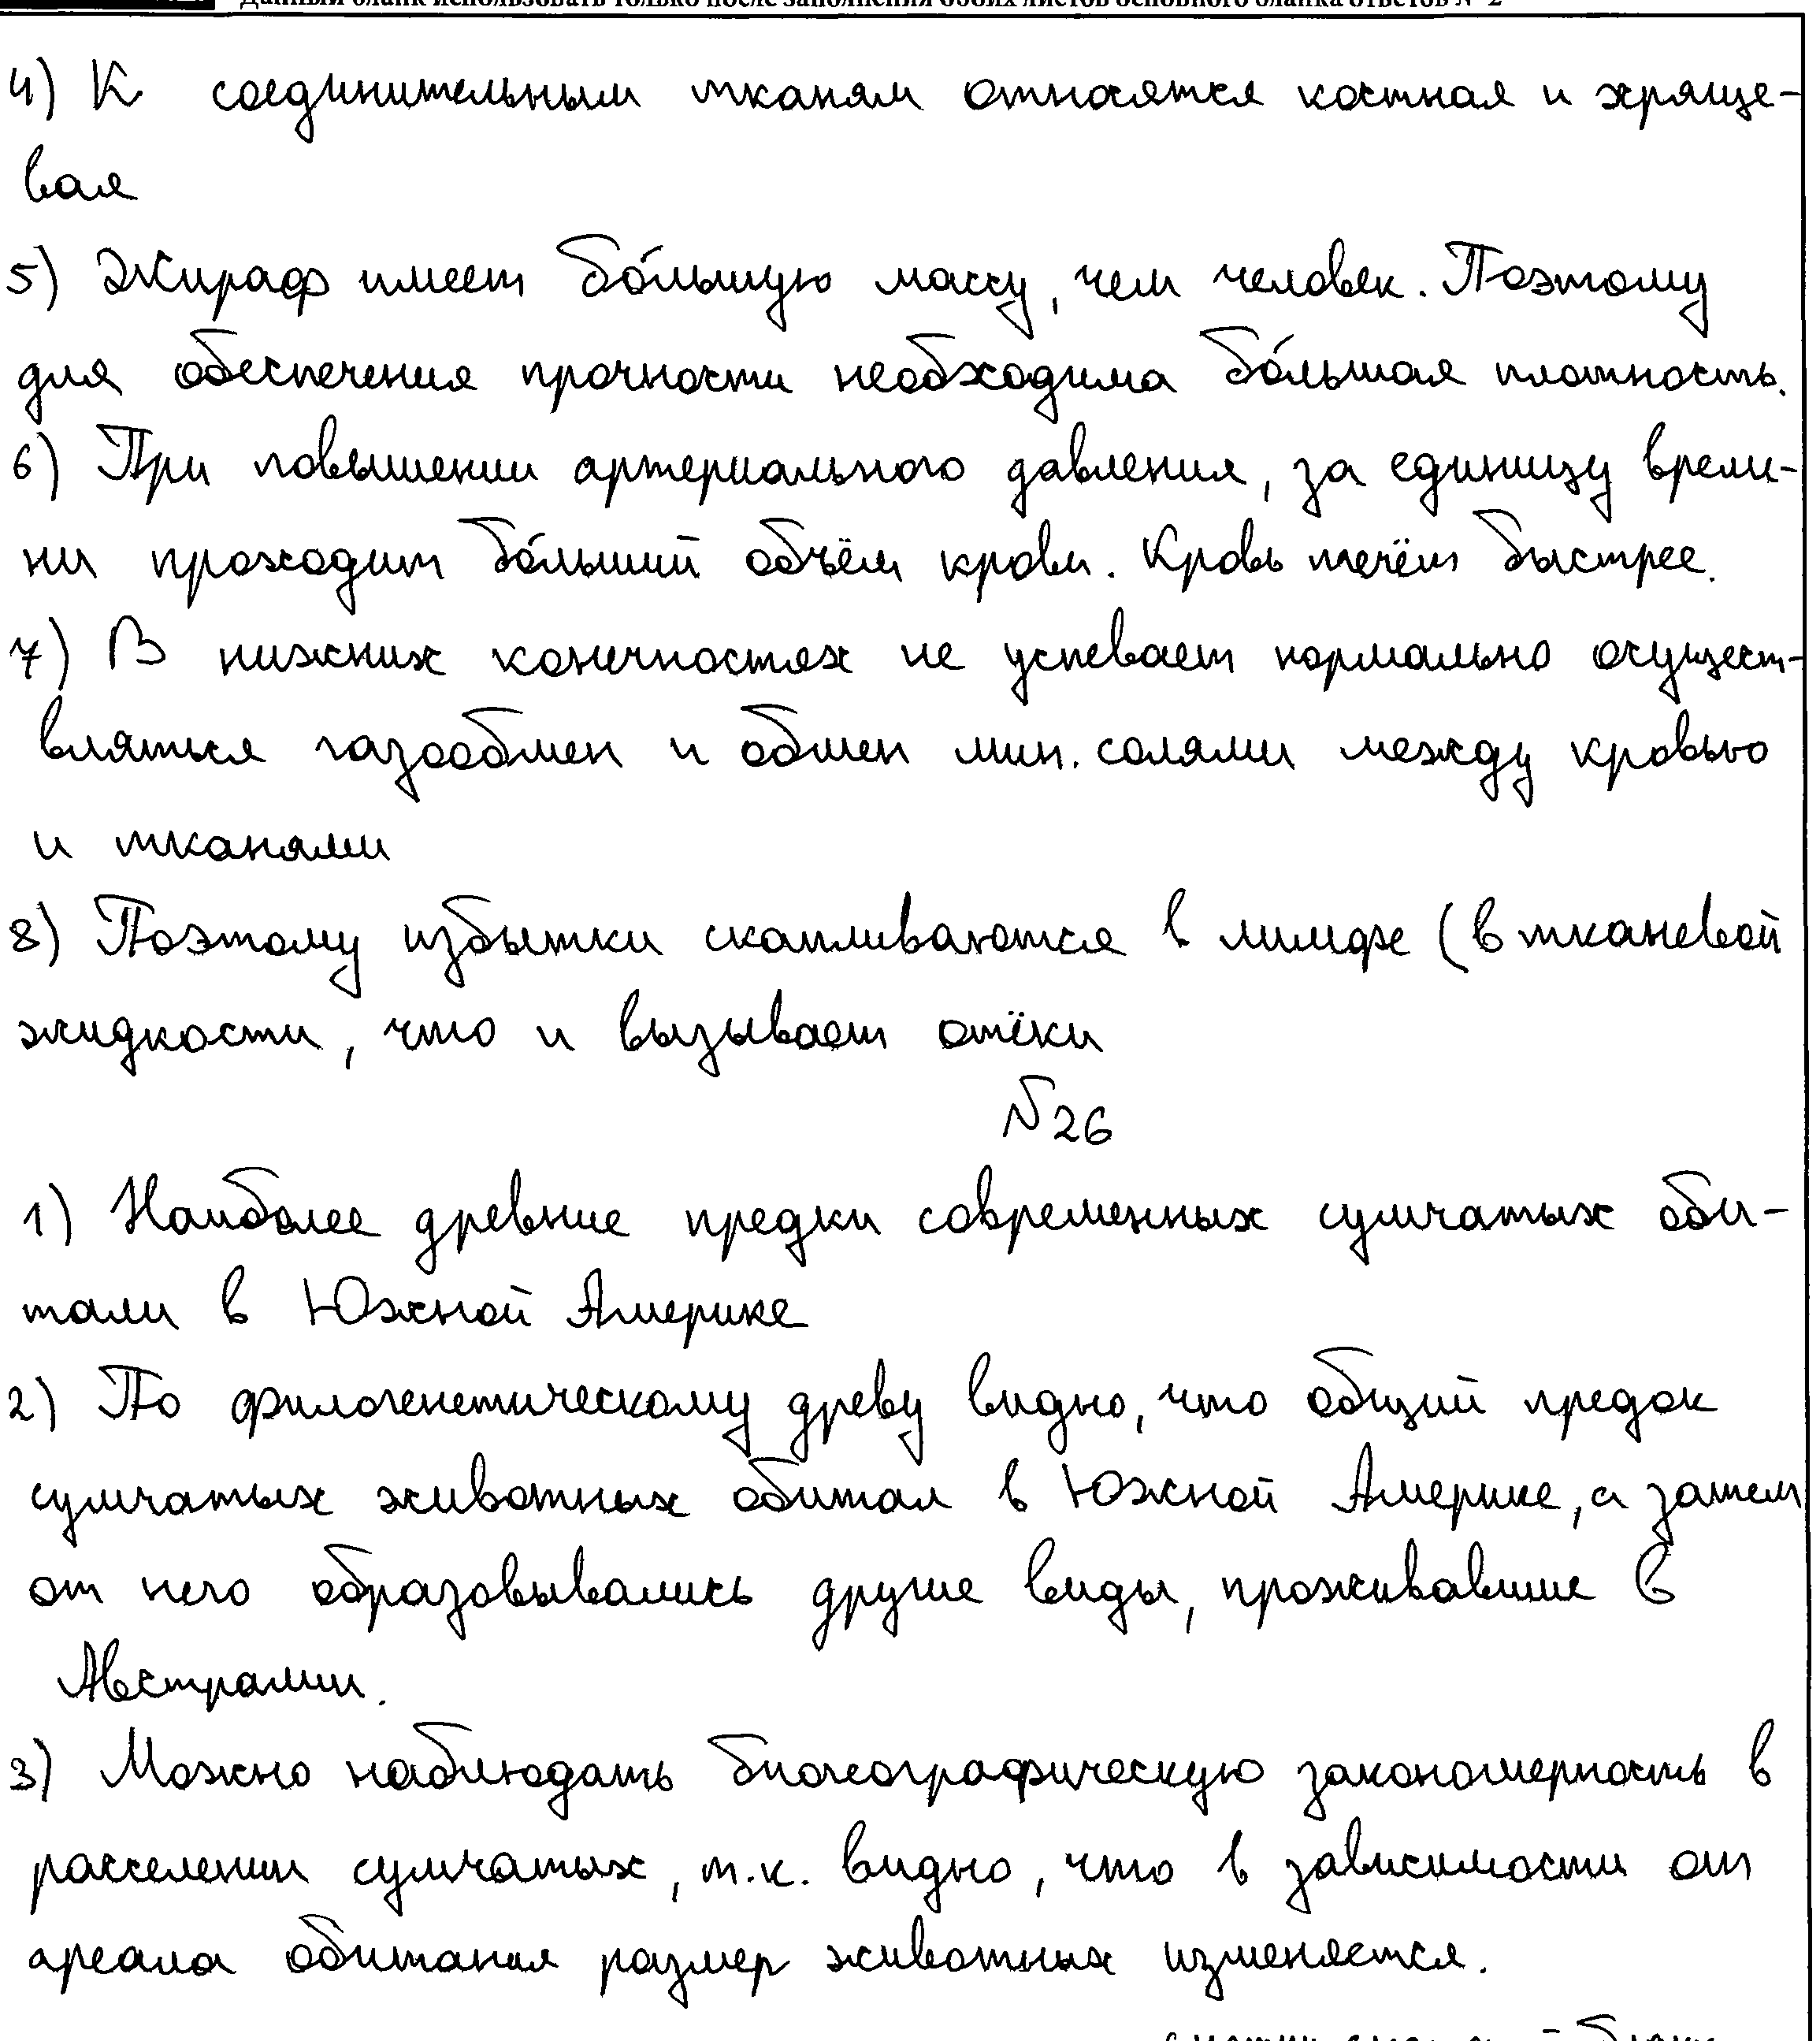 Данный бланк использовать только после заполнения обоих листов основного бланка ответов № 2
4) К соединительным тканям относятся костная и хряще-
вая
5) Жираф имеет бо́льшую массу, чем человек. Поэтому
для обеспечения прочности необходима бо́льшая плотность.
6) При повышении артериального давления, за единицу време-
ни проходит бо́льший объём крови. Кровь течёт быстрее.
7) В нижних конечностях не успевает нормально осущест-
вляться газообмен и обмен мин. солями между кровью
и тканями
8) Поэтому избытки скапливаются в лимфе (в тканевой
жидкости, что и вызывает отёки
№26
1) Наиболее древние предки современных сумчатых оби-
тали в Южной Америке
2) По филогенетическому древу видно, что общий предок
сумчатых животных обитал в Южной Америке, а затем
от него образовывались другие виды, проживавшие в
Австралии.
3) Можно наблюдать биогеографическую закономерность в
расселении сумчатых, т.к. видно, что в зависимости от
ареала обитания размер животных изменяется.